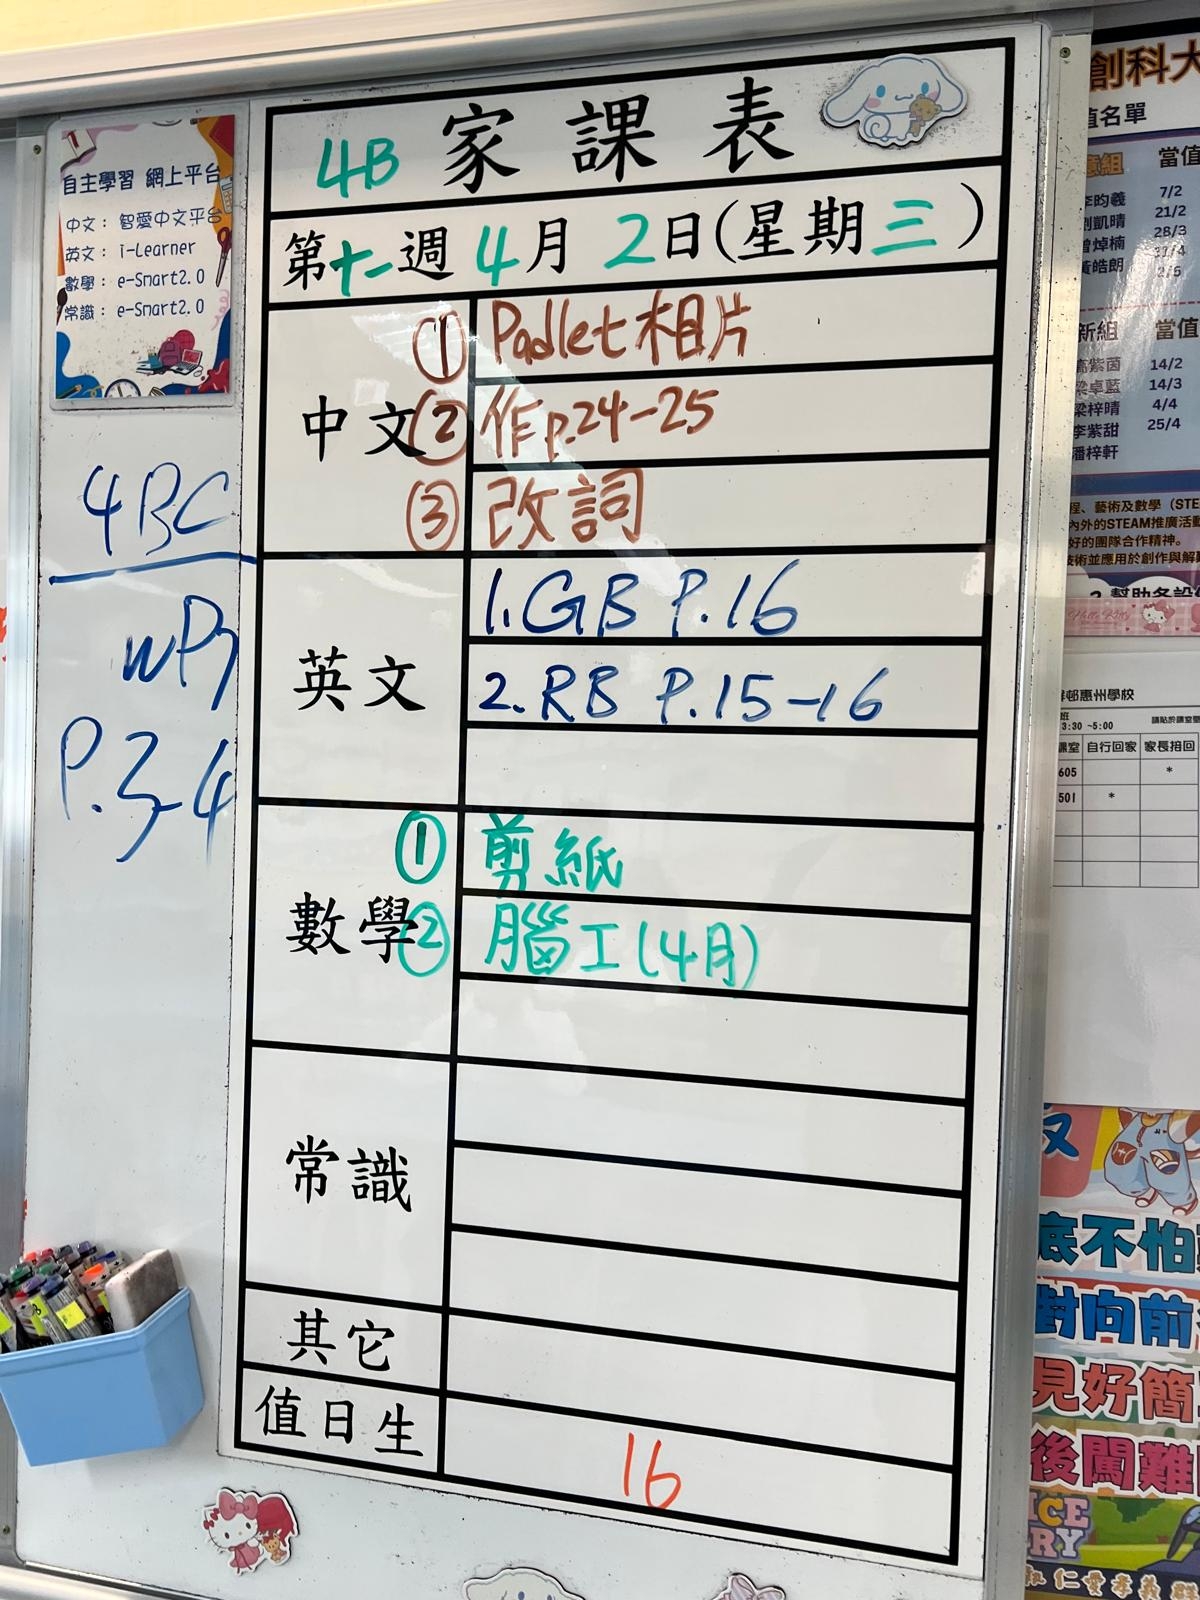 4B 家課表
第十一週 4月 2日(星期三)
中文
① Padlet相片
② 作p.24-25
③ 改詞
英文
1. GB P.16
2. RB P.15-16
數學
① 剪紙
② 腦工(4月)
常識
其它
值日生
16
自主學習 網上平台
中文： 智愛中文平台
英文： i-Learner
數學： e-Smart2.0
常識： e-Smart2.0
4BC
P.3-4
創科大
值名單
當值
7/2
21/2
28/3
黃皓朗
新組 當值
高紫茵 14/2
梁卓藍 14/3
梁梓晴 4/4
李紫甜 25/4
潘梓軒
程、藝術及數學（STE
內外的STEAM推廣活動
好的團隊合作精神。
技術並應用於創作與解
Hello Kitty
邨惠州學校
3:30 ~5:00
課室 自行回家 家長接回
605 *
501 *
底不怕
對向前
見好簡
後闖難
仁愛孝義